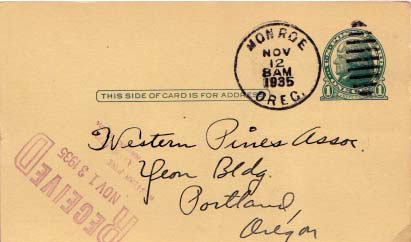 MONROE
NOV
12
8AM
1935
OREG.
THIS SIDE OF CARD IS FOR ADDRESS
1 1
Western Pines Assoc.
Yeon Bldg.
Portland,
Oregon
RECEIVED
NOV 13 1935